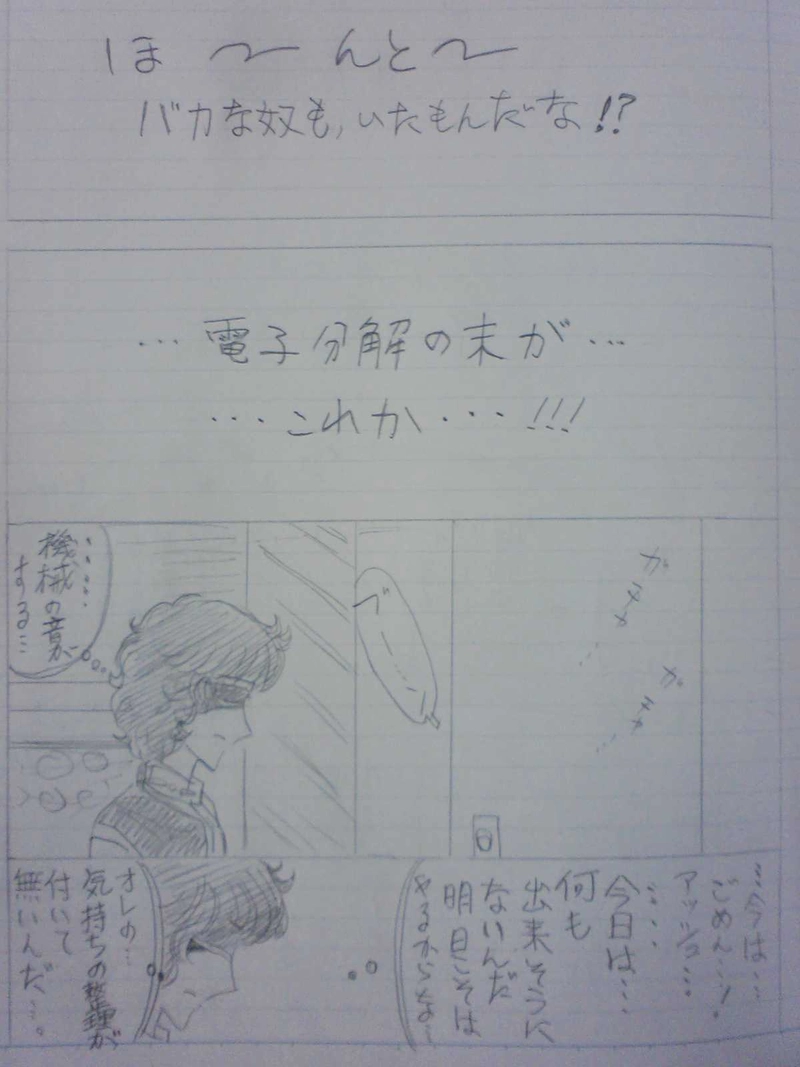 ほ〜んと〜
バカな奴も,いたもんだな!?
…電子分解の末が…
…これか…!!!
ガチャ…
ガチャ…
ブーーン
……
機械の音が
する…
…今は…
ごめん…!。
アッシュ…
……
今日は…
何も
出来そうに
ないんだ
明日こそは
やるからな…
オレの…
気持ちの整理が
付いて
無いんだ…。